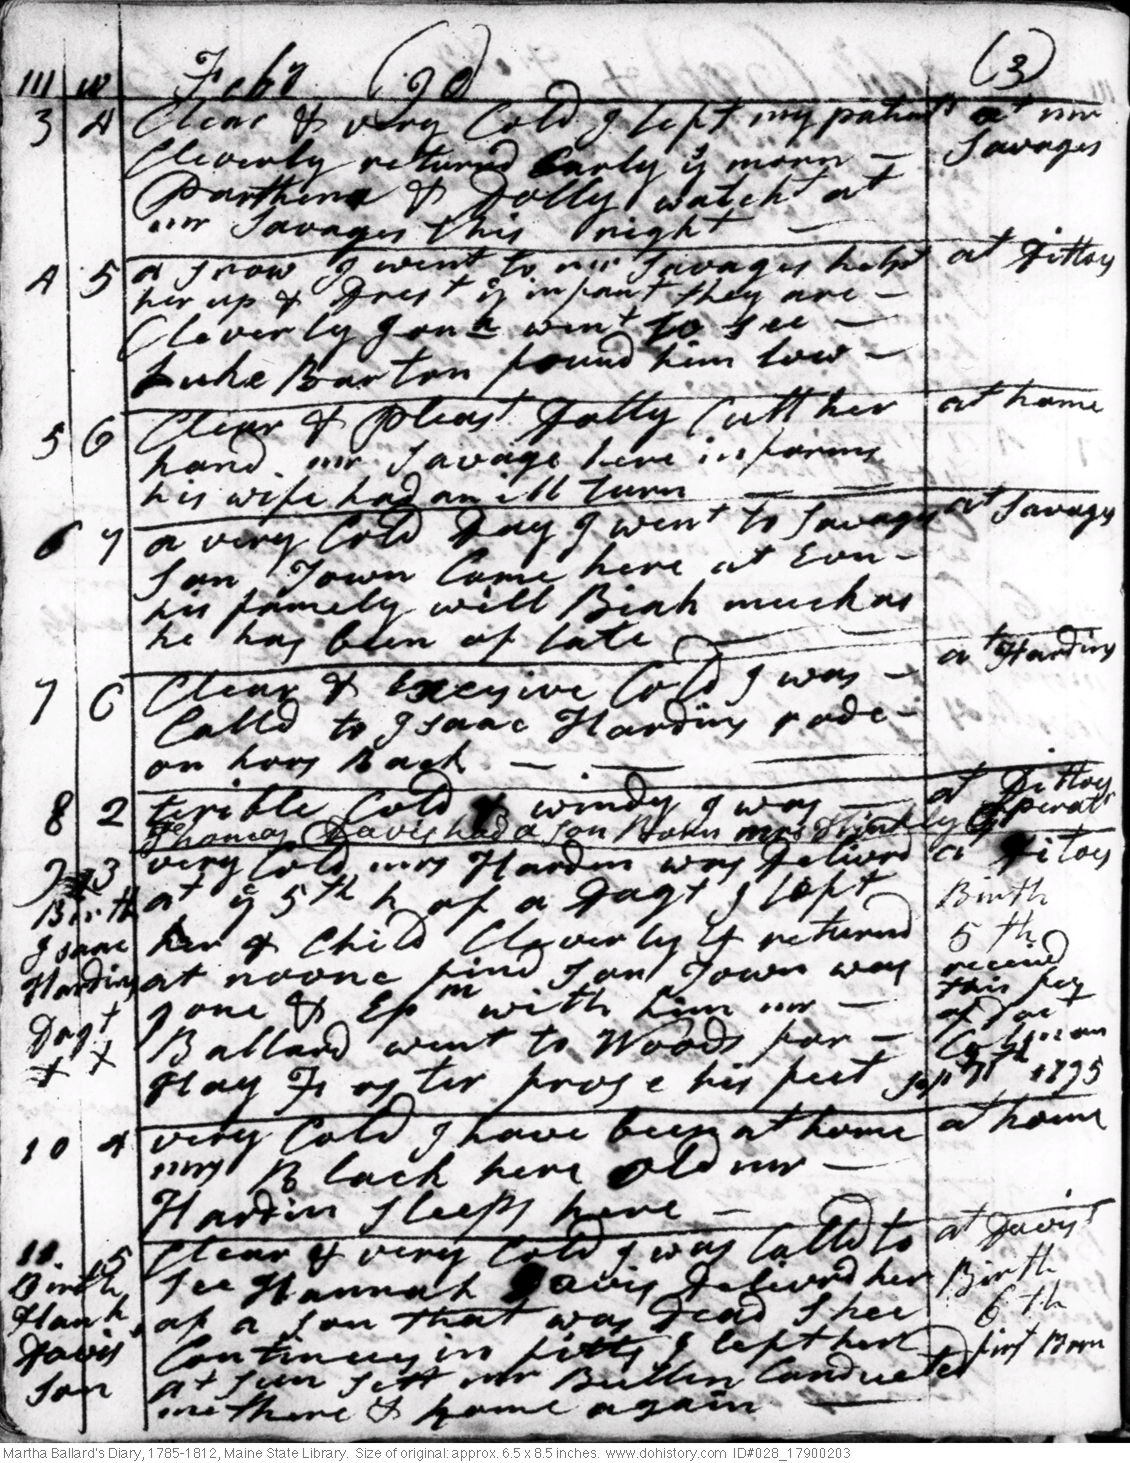 m w Feby (90) (3)
3 4 Clear & very Cold I left my patient at mr
Cleverly returnd Early ys morn — Savages
Parthena & Dolly watcht at
mr Savages this night —
4 5 a snow I went to mr Savages helpt at Dittoes
her up & Drest ye infant they are —
Cleverly Jonn went to see —
Luke Barton found him low —
5 6 Clear & pleast Dolly Cutt her at home
hand. mr Savage here informs
his wife had an ill turn
6 7 a very Cold Day I went to Savages at Savages
Son Town Came here at Evn —
his famely well Biah much as
he has been of late
7 C Clear & Excesive Cold I was — at Hardins
Calld to Isaac Hardins rode —
on hors Back —
8 2 terible Cold & windy I was — at Dittoes
Thomas Davis had a son Born mrs Hinkly Operatr
9 3 very Cold mrs Hardin was Delivrd at Ditoes
Birth at ye 5th h of a Dagt I left Birth
Isaac her & Child Cleverly & returnd 5th
Hardins at noone find Son Town was receivd
gone & Epm with him mr — this fee
Dagt Ballard went to Woods for — of Doct
X X Hay Foster froze his feet Colman
Sept 1795
10 4 very Cold I have been at home at home
mrs Black here old mr —
Hardin sleeps here —
11 5 Clear & very Cold I was Calld to at Davis
Birth see Hannah Davis Delivrd her Birth
Hanh of a son that was Dead shee 6th
Davis Continues in fitts I left her first Born
son at sun sett mr Bullin Conducted
me there & home again —
Martha Ballard's Diary, 1785-1812, Maine State Library. Size of original: approx. 6.5 x 8.5 inches. www.dohistory.com ID#028_17900203